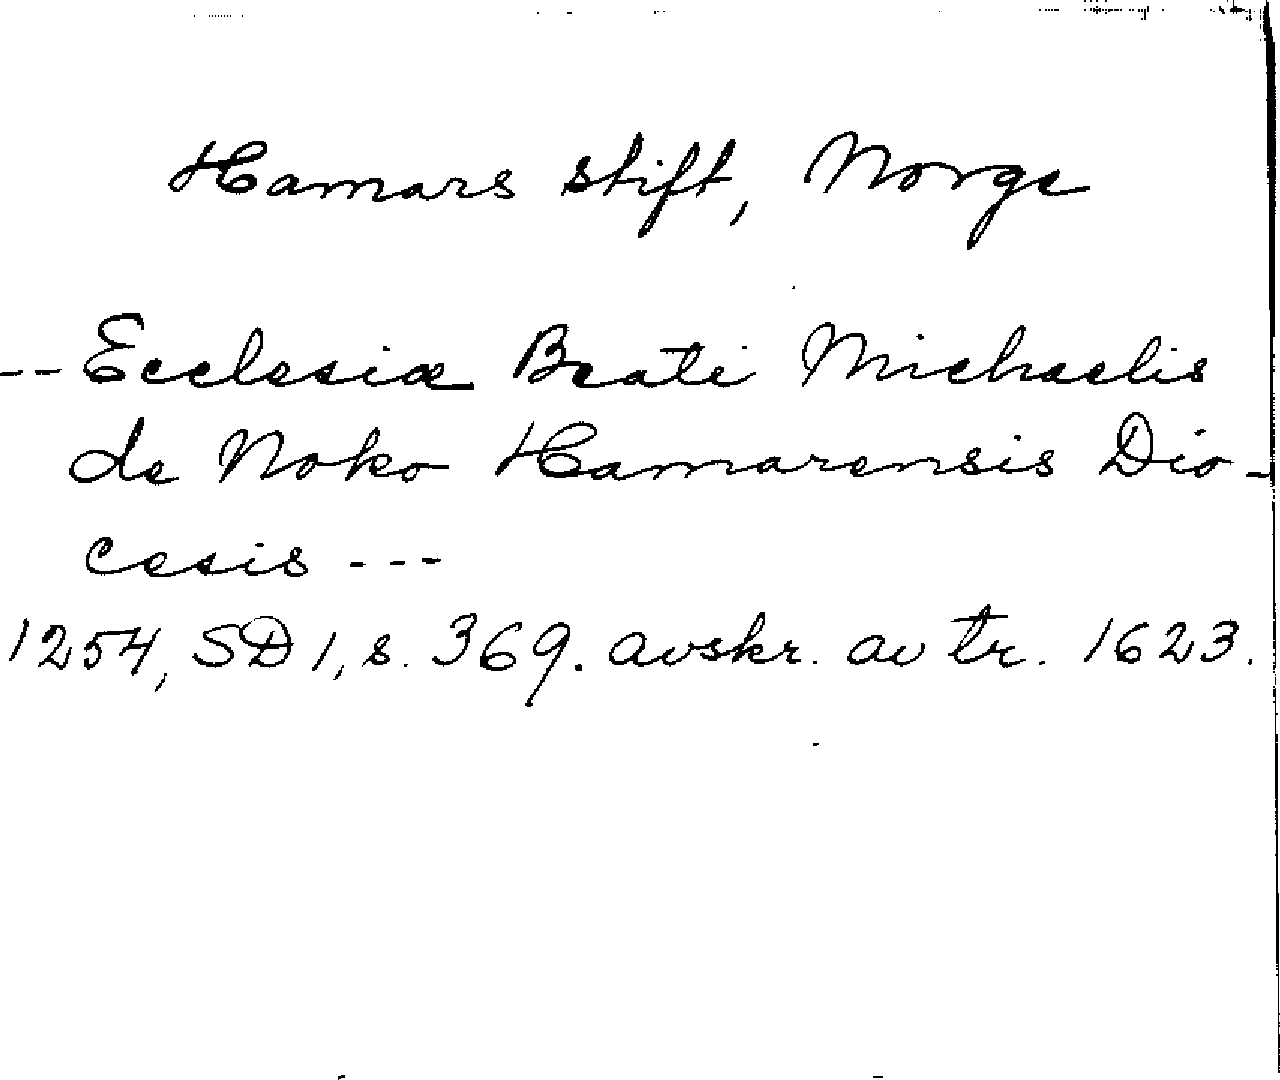 Hamars stift, Norge
-- Ecclesiæ Beati Michaelis
de Noko Hamarensis Dio-
cesis ---
1254, SD 1, s. 369. avskr. av tr. 1623.